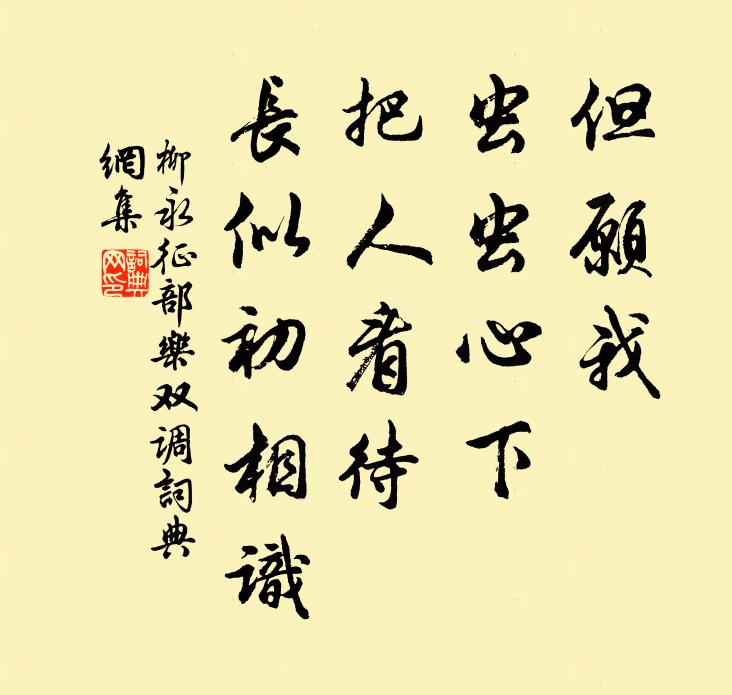 但願我
虫虫心下
把人看待
長似初相識
柳永征部樂双调詞典
網集
詞典
网印